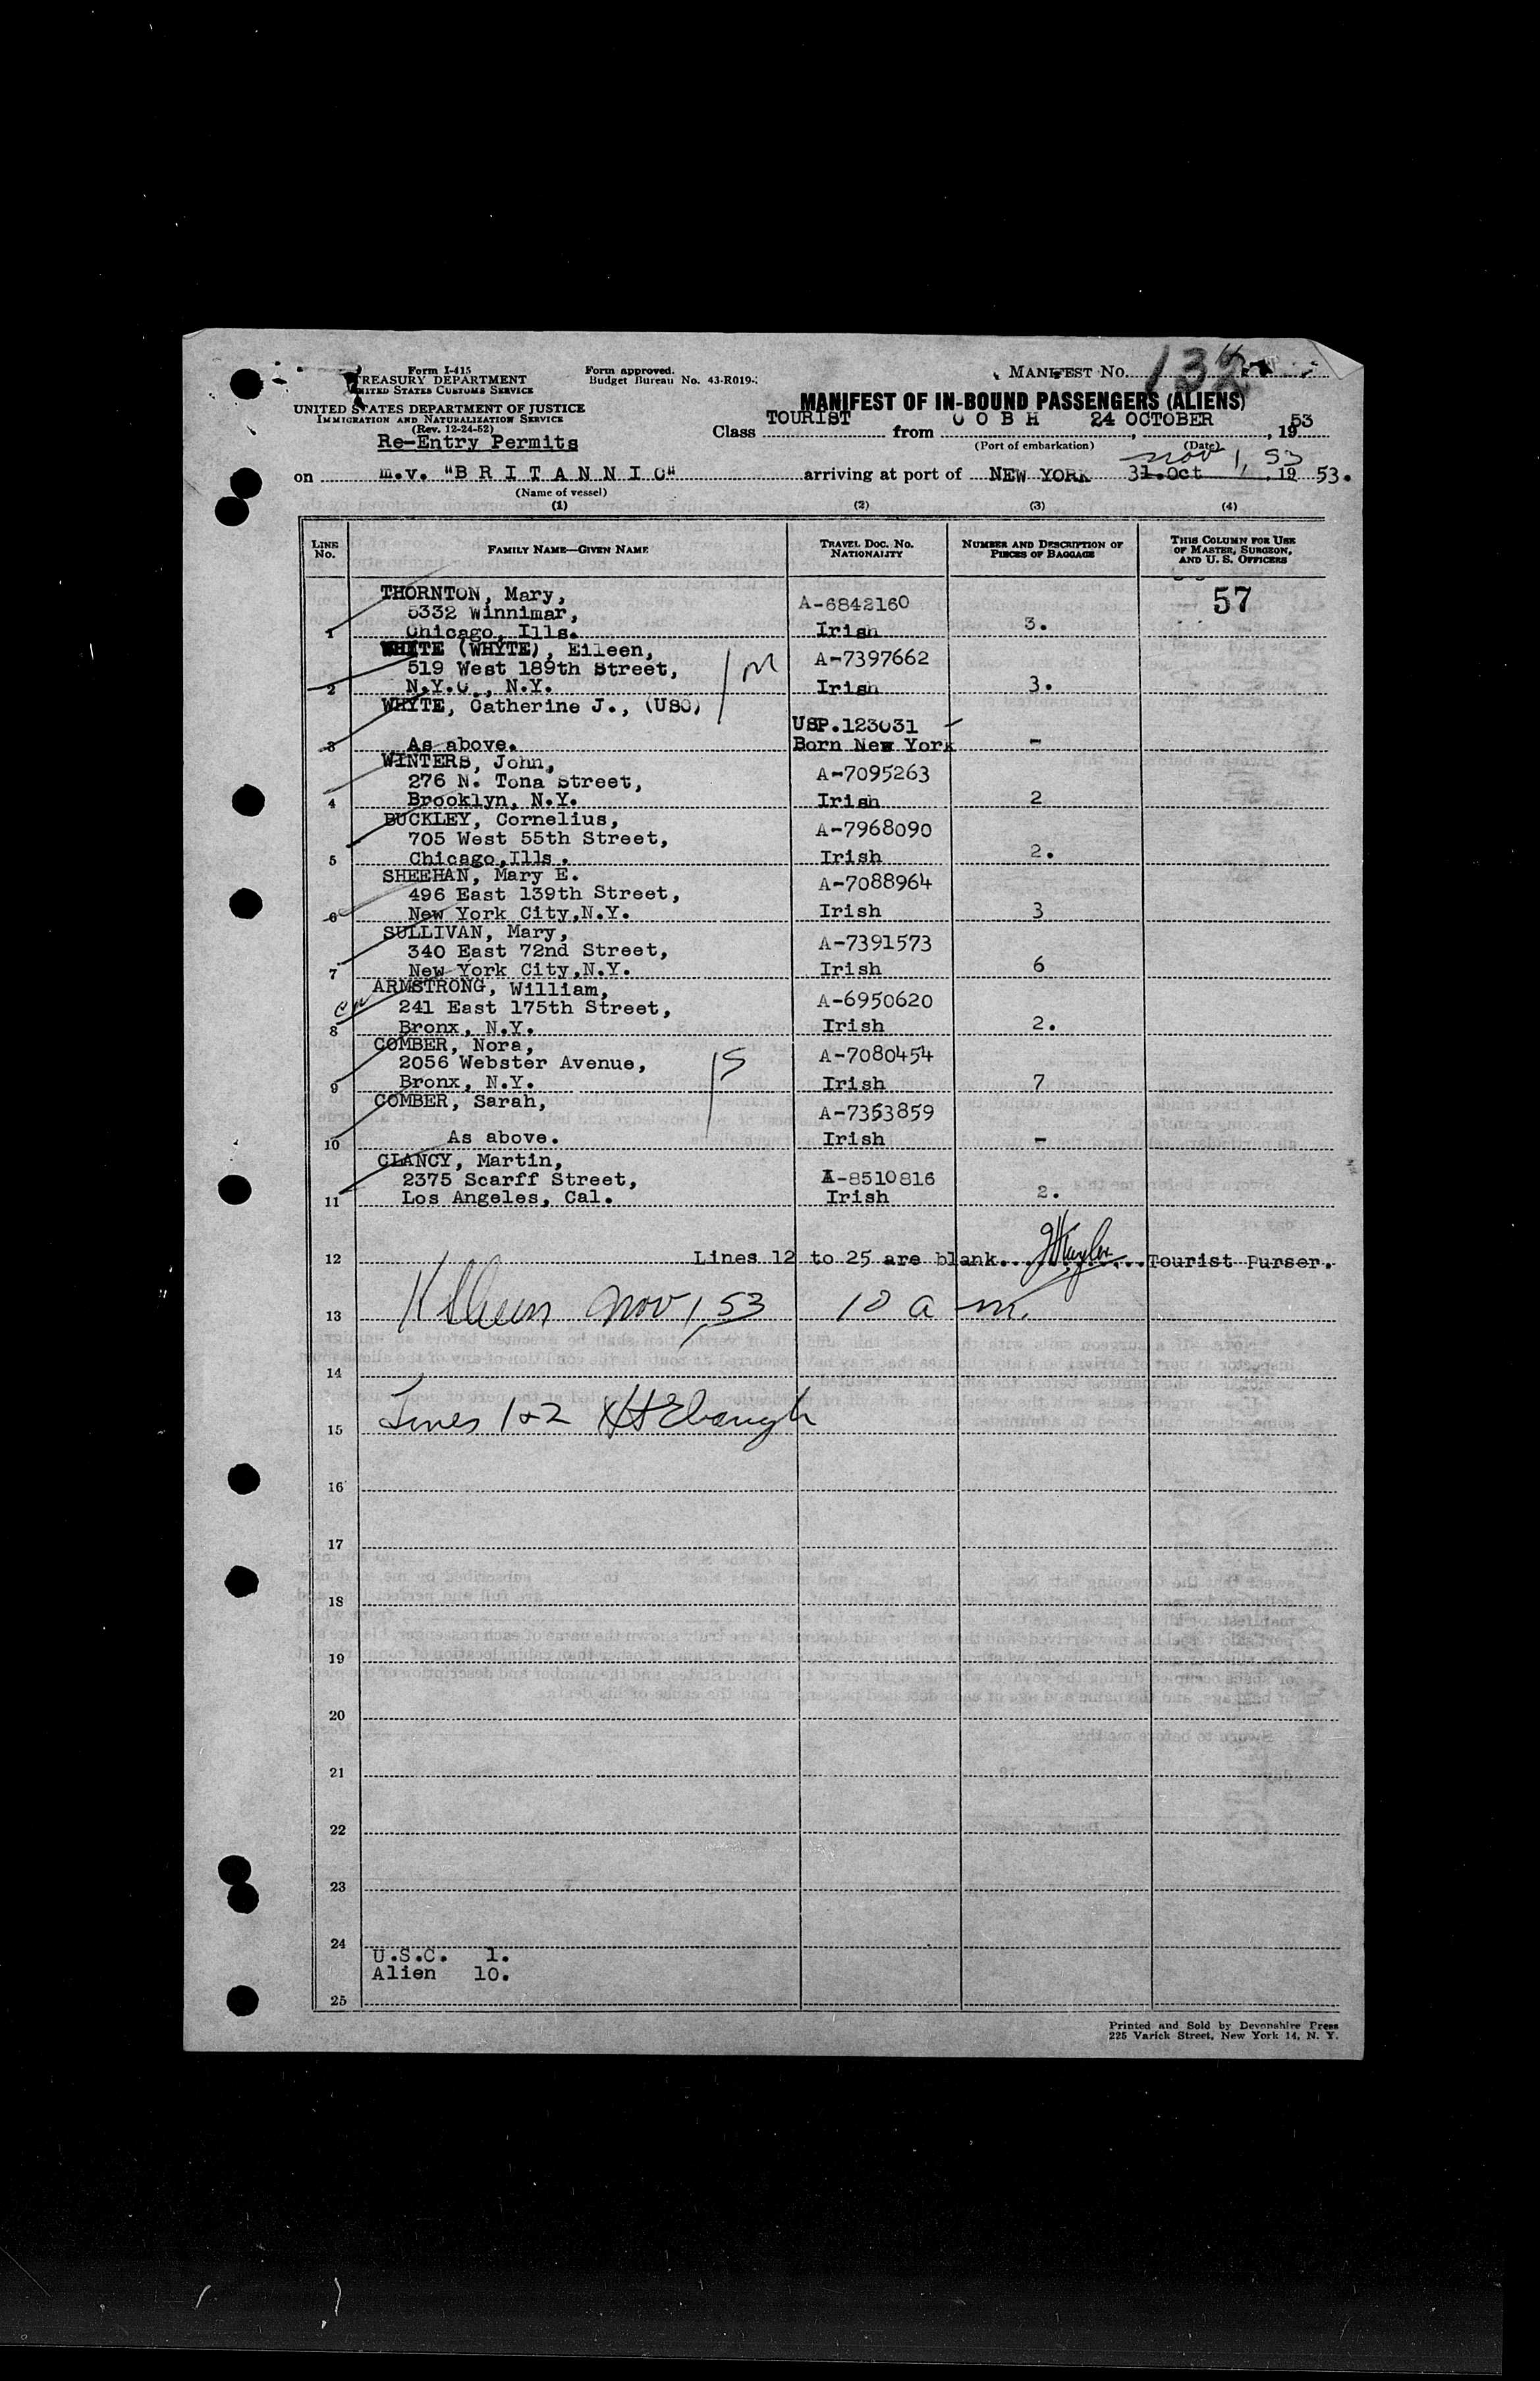 Form I-415
TREASURY DEPARTMENT
UNITED STATES CUSTOMS SERVICE
UNITED STATES DEPARTMENT OF JUSTICE
IMMIGRATION AND NATURALIZATION SERVICE
(Rev. 12-24-52)
Re-Entry Permits
Form approved.
Budget Bureau No. 43-R019-
MANIFEST NO. 132
MANIFEST OF IN-BOUND PASSENGERS (ALIENS)
Class TOURIST from COBH 24 OCTOBER, 1953
(Port of embarkation) (Date)
Nov 1, 53
on m.v. "BRITANNIC" arriving at port of NEW YORK 31.Oct 19 53.
(Name of vessel)
(1) (2) (3) (4)
LINE No. FAMILY NAME—GIVEN NAME TRAVEL DOC. NO. NATIONALITY NUMBER AND DESCRIPTION OF PIECES OF BAGGAGE THIS COLUMN FOR USE OF MASTER, SURGEON, AND U. S. OFFICERS
THORNTON, Mary, A-6842160 57
5332 Winnimar,
1 Chicago, Ills. Irish 3.
WHITE (WHYTE), Eileen, A-7397662
519 West 189th Street, M
2 N.Y.C., N.Y. Irish 3.
WHYTE, Catherine J., (USC)
USP.123031
3 As above. Born New York -
WINTERS, John, A-7095263
276 N. Tona Street,
4 Brooklyn, N.Y. Irish 2
BUCKLEY, Cornelius, A-7968090
705 West 55th Street,
5 Chicago,Ills. Irish 2.
SHEEHAN, Mary E. A-7088964
496 East 139th Street,
6 New York City,N.Y. Irish 3
SULLIVAN, Mary, A-7391573
340 East 72nd Street,
7 New York City,N.Y. Irish 6
ARMSTRONG, William, A-6950620
241 East 175th Street,
8 Bronx, N.Y. Irish 2.
COMBER, Nora, A-7080454
2056 Webster Avenue, S
9 Bronx, N.Y. Irish 7
COMBER, Sarah, A-7353859
10 As above. Irish -
CLANCY, Martin,
2375 Scarff Street, A-8510816
11 Los Angeles, Cal. Irish 2.
12 Lines 12 to 25 are blank. Tourist Purser.
13 Nov 1, 53 10 a m.
14
15 Lines 1+2 Ebaugh
16
17
18
19
20
21
22
23
24
U.S.C. 1.
Alien 10.
25
Printed and Sold by Devonshire Press
225 Varick Street, New York 14, N. Y.